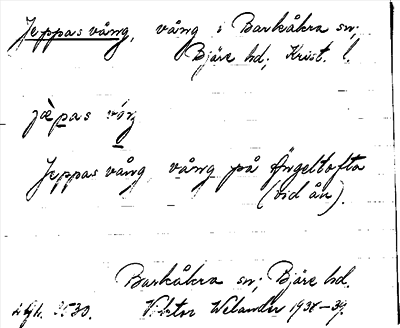 Jeppas vång, vång i Barkåkra sn;
Bjäre hd; Krist. l.
jæ̀pas
Jeppas vång vång på Ängeltofta
(vid ån).
Barkåkra sn; Bjäre hd.
Viktor Welander 1938–39.